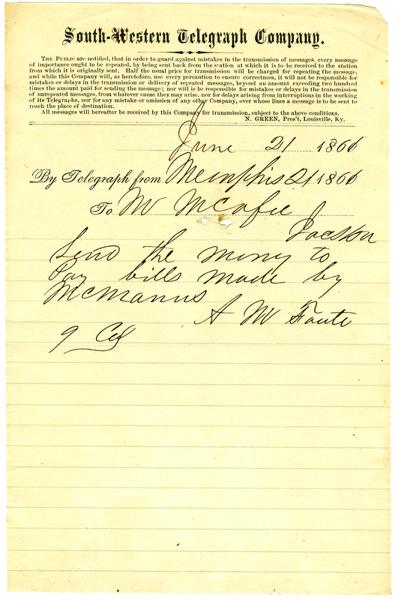 South-Western Telegraph Company.
THE PUBLIC are notified, that in order to guard against mistakes in the transmission of messages, every message
of importance ought to be repeated, by being sent back from the station at which it is to be received to the station
from which it is originally sent. Half the usual price for transmission will be charged for repeating the message,
and while this Company will, as heretofore, use every precaution to ensure correctness, it will not be responsible for
mistakes or delays in the transmission or delivery of repeated messages, beyond an amount exceeding two hundred
times the amount paid for sending the message; nor will it be responsible for mistakes or delays in the transmission
of unrepeated messages, from whatever cause they may arise, nor for delays arising from interruptions in the working
of its Telegraphs, nor for any mistake or omission of any other Company, over whose lines a message is to be sent to
reach the place of destination.
All messages will hereafter be received by this Company for transmission, subject to the above conditions.
N. GREEN, Pres't, Louisville, Ky.
June 21 1866
By Telegraph from Memphis 21 1866
To M McAfee
Jackson
Send the mony to
Pay bills made by
McManus
A M Foute
9 Col